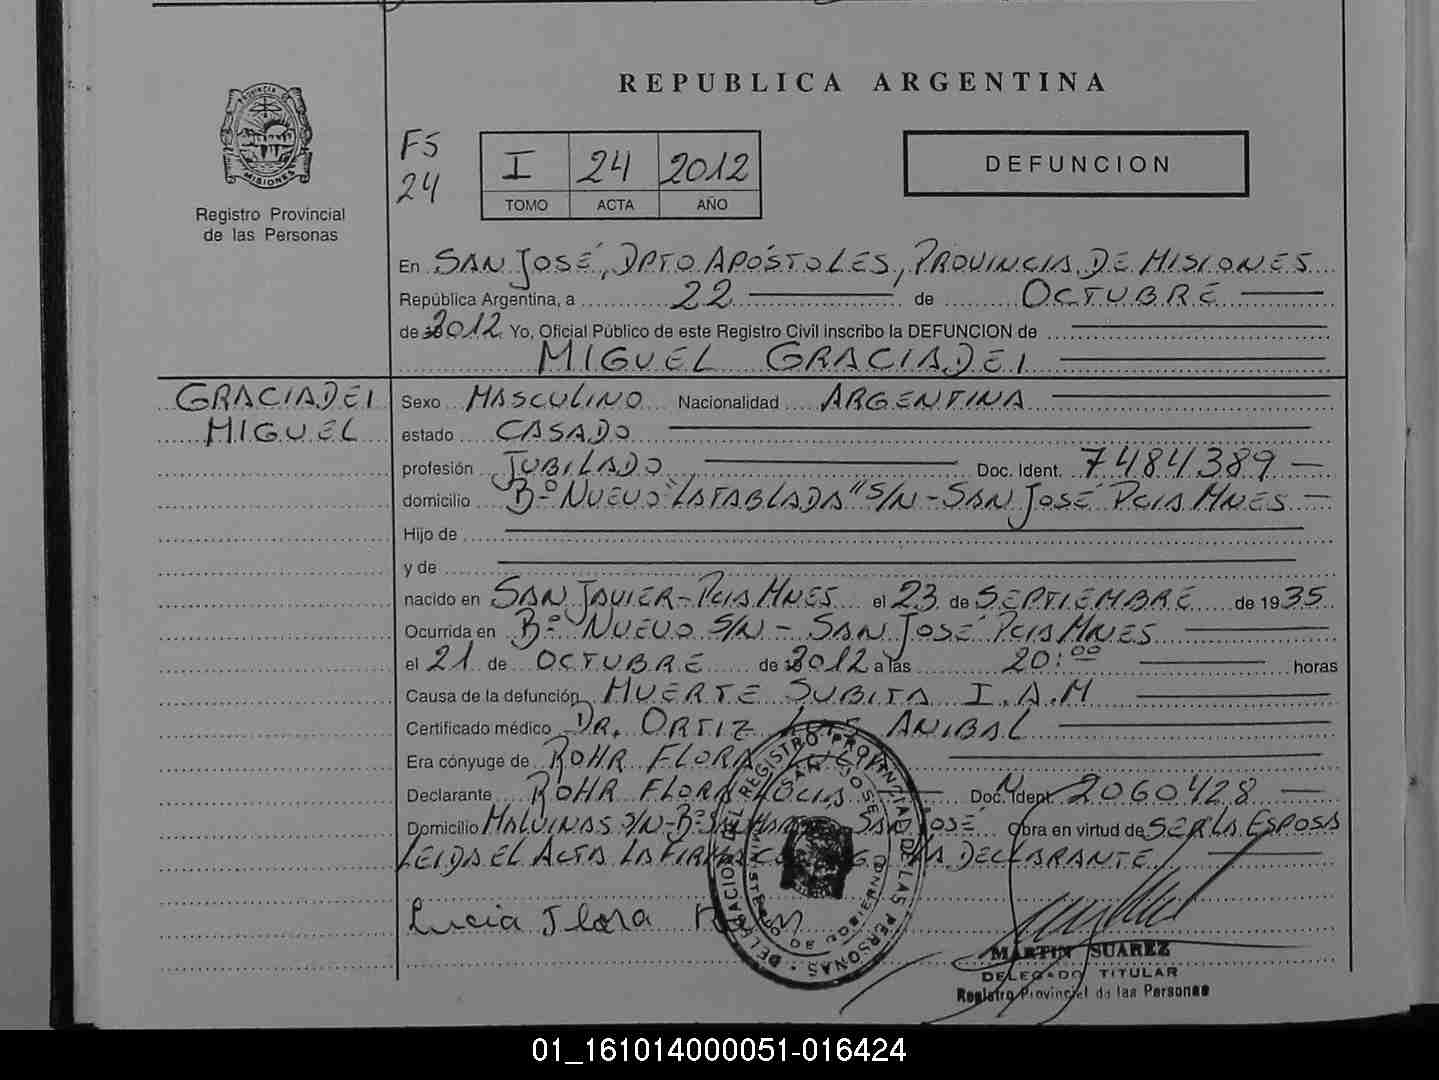 REPUBLICA ARGENTINA
PROVINCIA DE
MISIONES
Registro Provincial
de las Personas
FS
24
I 24 2012
TOMO ACTA AÑO
DEFUNCION
En SAN JOSÉ, DPTO APÓSTOLES, PROVINCIA DE MISIONES
República Argentina, a 22 de OCTUBRE
de 2012 Yo, Oficial Público de este Registro Civil inscribo la DEFUNCION de
MIGUEL GRACIADEI
GRACIADEI
MIGUEL
Sexo MASCULINO Nacionalidad ARGENTINA
estado CASADO
profesión JUBILADO Doc. Ident. 7484389
domicilio Bº NUEVO "LA TABLADA" S/N - SAN JOSÉ PCIA MNES
Hijo de
y de
nacido en SAN JAVIER - PCIA MNES el 23 de SEPTIEMBRE de 1935
Ocurrida en Bº NUEVO S/N - SAN JOSÉ PCIA MNES
el 21 de OCTUBRE de 2012 a las 20:00 horas
Causa de la defunción MUERTE SUBITA I.A.M
Certificado médico DR. ORTIZ LUIS ANIBAL
Era cónyuge de ROHR FLORA LUCIA
Declarante ROHR FLORA LUCIA Doc. Ident. 2060428
Domicilio MALVINAS S/N - Bº SAN JOSÉ Obra en virtud de SER LA ESPOSA
LEIDA EL ACTA LA FIRMA LA DECLARANTE
Lucia Flora
DELEGACION DEL REGISTRO PROVINCIAL DE LAS PERSONAS
SAN JOSE
MINISTERIO DE GOBIERNO
MARTIN SUAREZ
DELEGADO TITULAR
Registro Provincial de las Personas
01_161014000051-016424